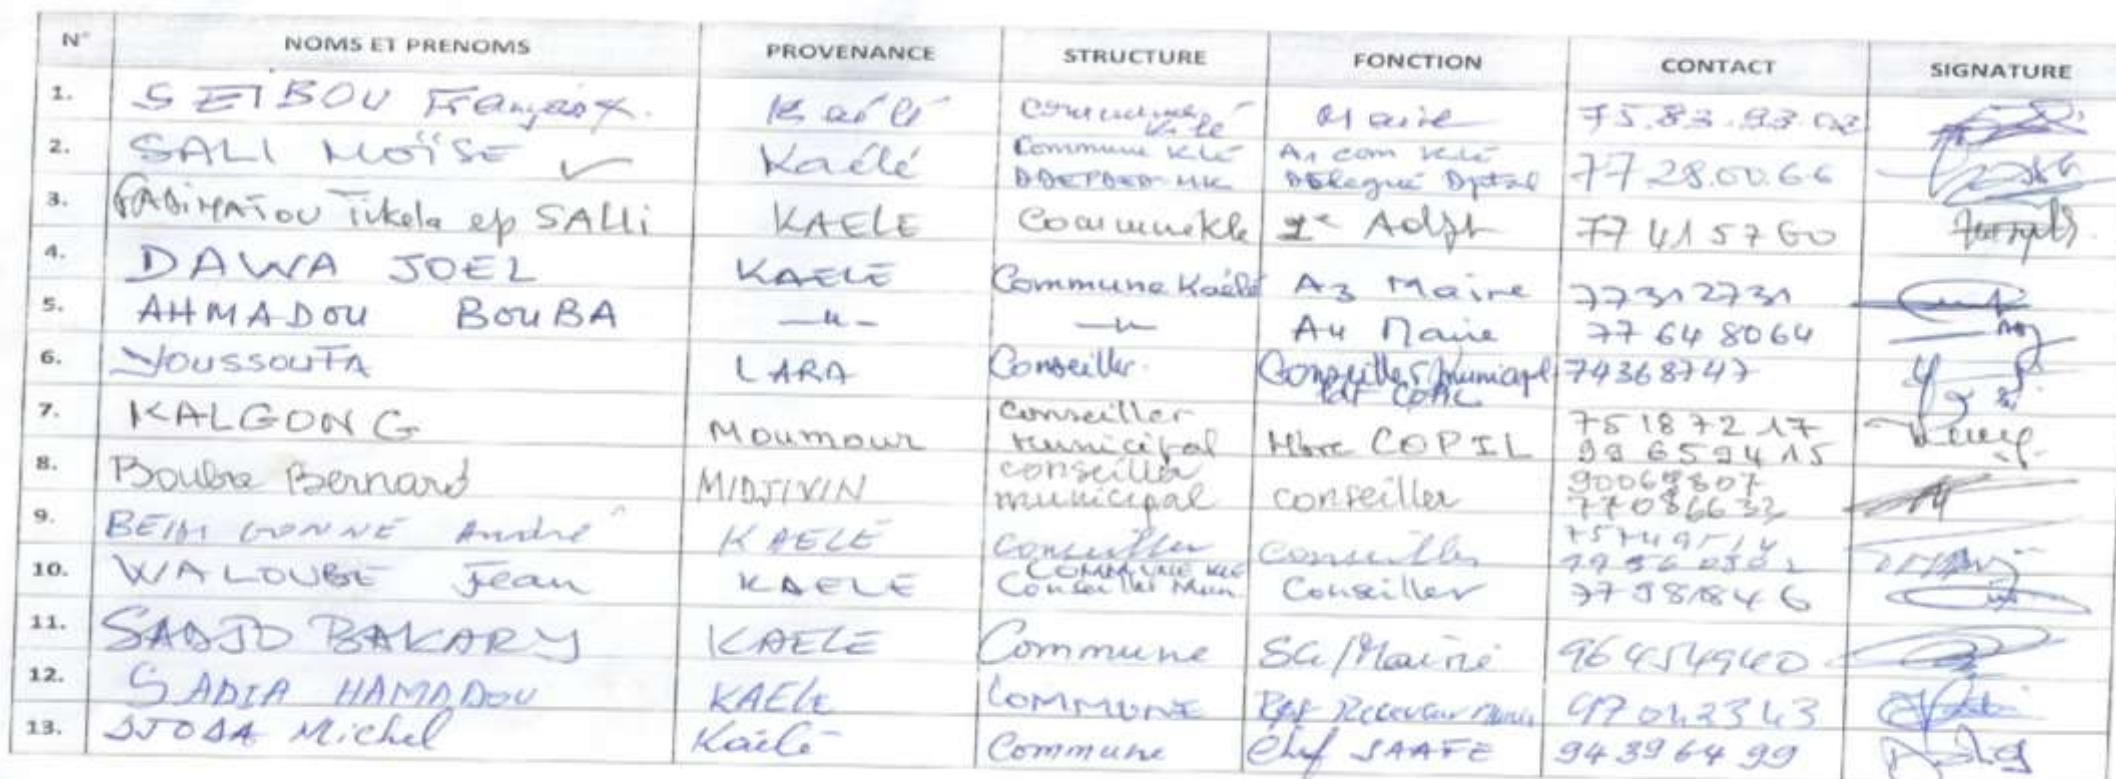 N° NOMS ET PRENOMS PROVENANCE STRUCTURE FONCTION CONTACT SIGNATURE
1. SEIBOU François Kaélé Commune Klé Maire 75.83.93.03
2. SALI MOÏSE Kaélé Commune Klé A1 com Klé 77 28.00.66
DDEPDED-MK Délegué Dptal
3. FADIMATOU Tikela ep SALLi KAELE Commune Kle 2e Adjt 77 41 57 60
4. DAWA JOEL KAELE Commune Kaélé A3 Maire 77312731
5. AHMADOU BOUBA —"— —"— A4 Maire 77 64 8064
6. YOUSSOUFA LARA Conseiller Conseiller Municipal 74368747
7. KALGONG Moumour Conseiller Municipal Mbre COPIL 75187217
99659415
8. Bouba Bernard MIDJIVIN conseiller municipal conseiller 90069807
77086632
9. BEIM GONNE André KAELE Conseiller Conseiller
10. WALOUBE Jean KAELE COMMUNE KLE Conseiller Mun Conseiller 77981846
11. SADJO BAKARY KAELE Commune SG/Mairie 96454940
12. SADIA HAMADOU KAELE COMMUNE Rpt Receveur Munic 97042343
13. DJODA Michel Kaélé Commune Chef SAAFE 94396499